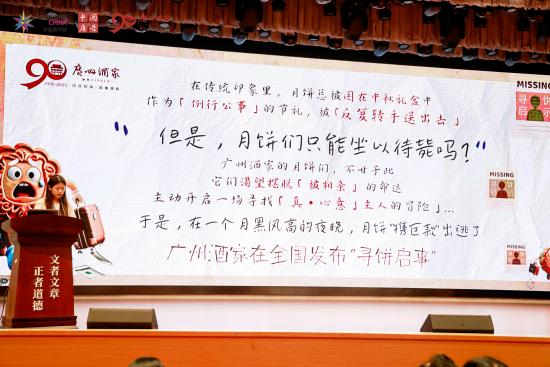 CHINA
中国
广告
90
广州酒家
1935-2025
在传统印象里，月饼总被困在中秋礼盒中
作为「例行公事」的节礼，被「反复转手送出去」
"但是，月饼们只能坐以待毙吗？"
广州酒家的月饼们，不甘于此
它们渴望摆脱「被相亲」的命运
主动开启一场寻找「真·心意」主人的冒险」...
于是，在一个月黑风高的夜晚，月饼"携巨款"出逃了
广州酒家在全国发布"寻饼启事"
MISSING
寻饼启
MISSING
MISSING
文者文章
正者道德